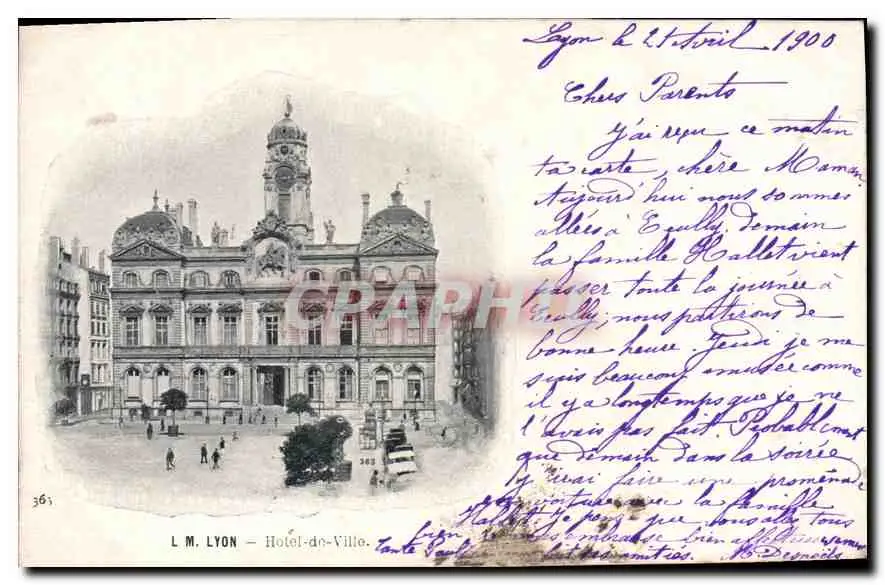 Lyon le 21 Avril 1900
Chers Parents
J'ai reçu ce matin
ta carte, chère Maman,
Aujourd'hui nous sommes
allées à Ecully, demain
la famille Hallet vient
passer toute la journée à
Ecully; nous partirons de
bonne heure. Jeudi je me
suis beaucoup amusée comme
il y a longtemps que je ne
l'avais pas fait. Probablement
que demain dans la soirée
j'irai faire une promenade
en voiture avec la famille
Hallet. Je pense que vous allez tous
bien embrasse bien affectueusement
Tante
amitiés.
363
363
L M. LYON - Hotel-de-Ville.
CPARAMA